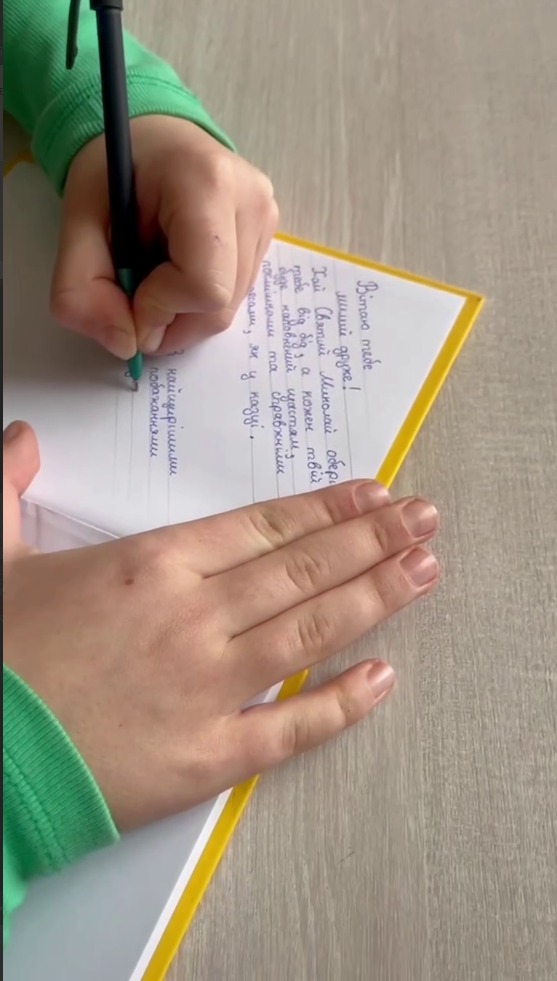 Вітаю тебе
милий друже!
Хай Святий Миколай обері
тебе від бід, а кожен твій
буде наповнений щастям,
посмішками та справжніми
як у казці.
З найщирішими
побажаннями